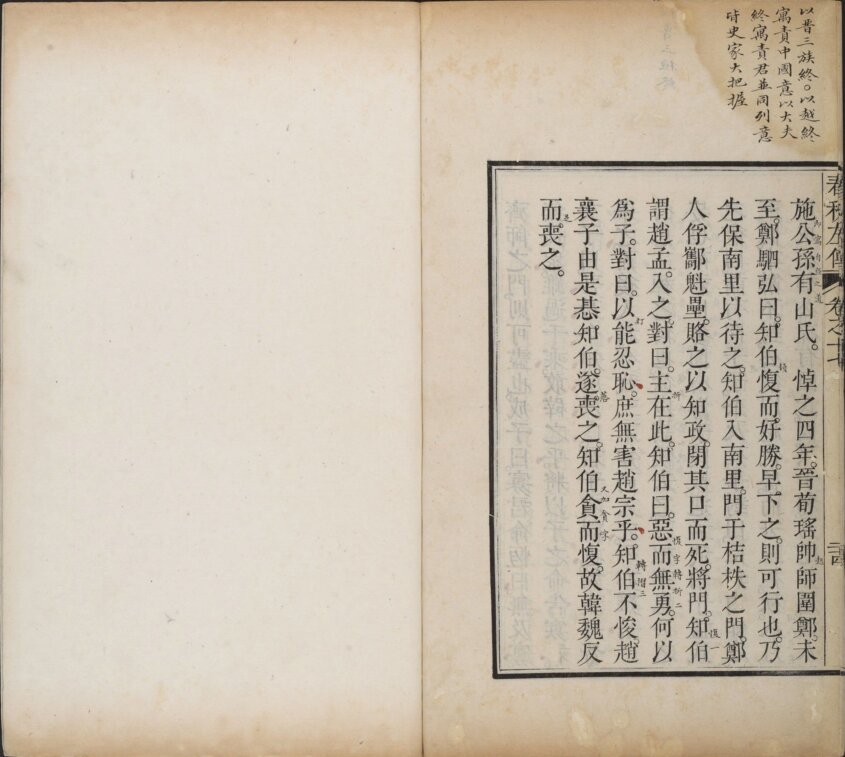 以晋三族終○以越終
寓責中國意以大夫
終寓責君並同列意
時史家大把握
春秋左傳
卷之十七
施公孫有山氏。 悼之四年。晉荀瑤帥師圍鄭。未
至。鄭駟弘曰。知伯愎而好勝。早下之。則可行也。乃
先保南里以待之。知伯入南里。門于桔柣之門。鄭
人俘酅魁壘。賂之以知政。閉其口而死。將門。知伯
謂趙孟。入之。對曰。主在此。知伯曰。惡而無勇。何以
爲子。對曰。以能忍恥。庶無害趙宗乎。知伯不悛。趙
襄子由是惎知伯。遂喪之。知伯貪而愎。故韓魏反
而喪之。
又加貪字
愎字轉折二
轉摺三